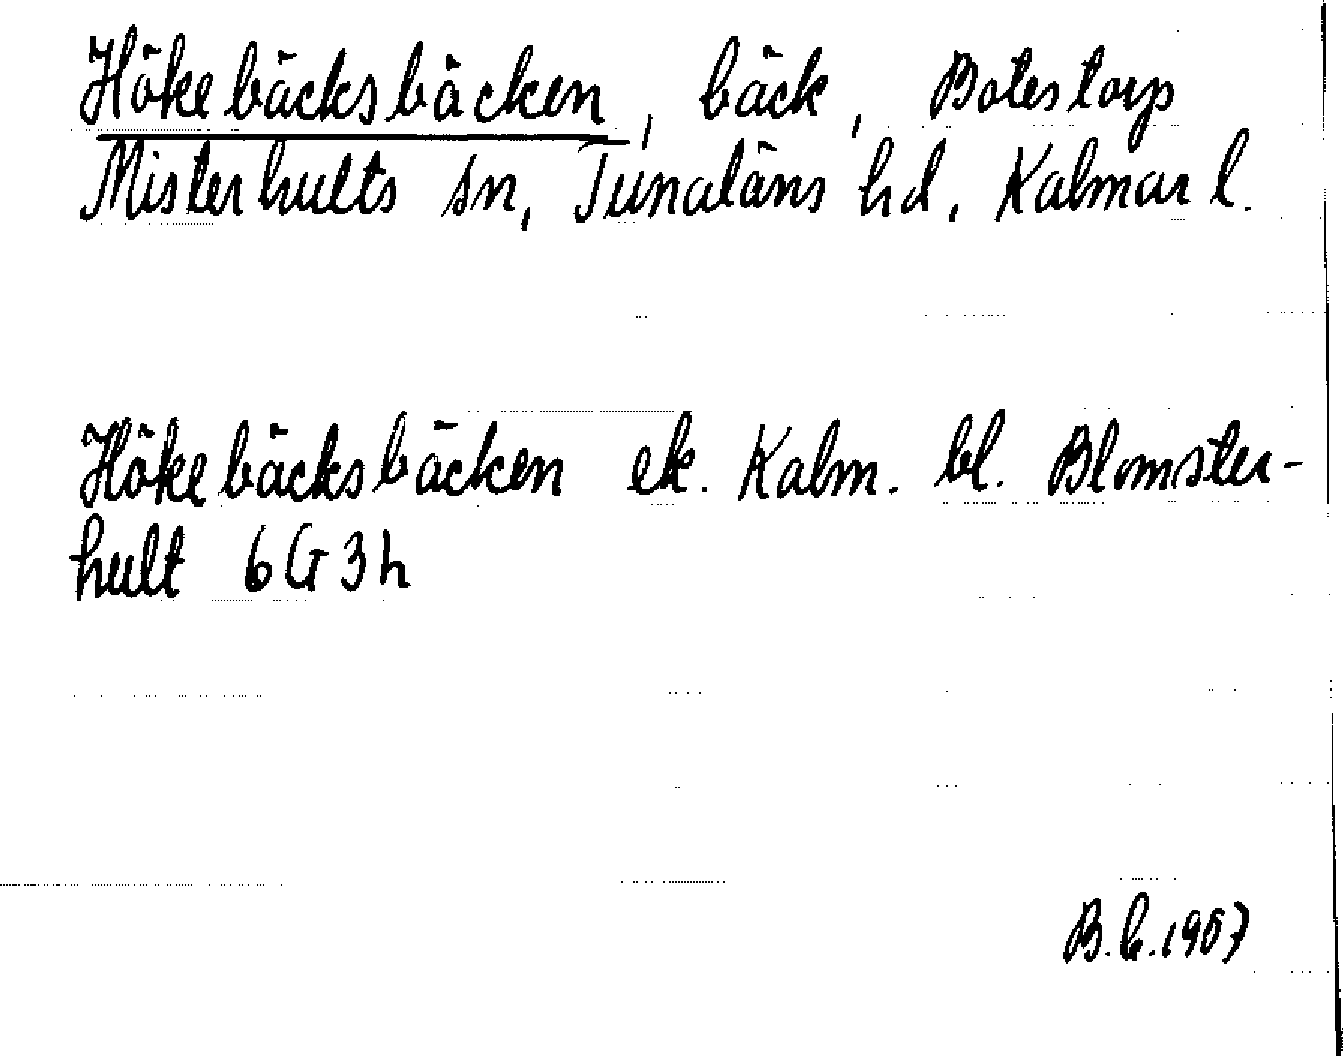 Hökebäcksbäcken, bäck, Botestorp
Misterhults sn, Tunaläns hd, Kalmar l.
Hökebäcksbäcken ek. Kalm. bl. Blomster-
hult 6G3h
1967